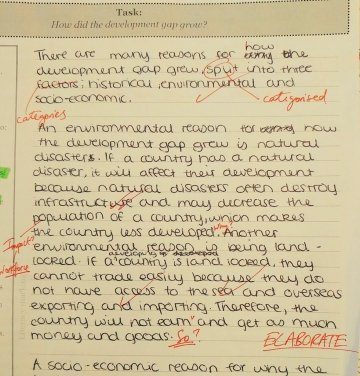 Task:
How did the development gap grow?
There are many reasons for how the
development gap grew, split into three
factors: historical, environmental and
socio-economic.
categorised
categories
An environmental reason for how
the development gap grew is natural
disasters. If a country has a natural
disaster, it will affect their development
because natural disasters often destroy
infrastructure and may decrease the
population of a country, which makes
the country less developed. Another
environmental reason is being land-
locked. If a country is land locked, they
cannot trade easily because they do
not have access to the sea and overseas
exporting and importing. Therefore, the
country will not earn and get as much
money and goods. So?
ELABORATE
A socio-economic reason for why the